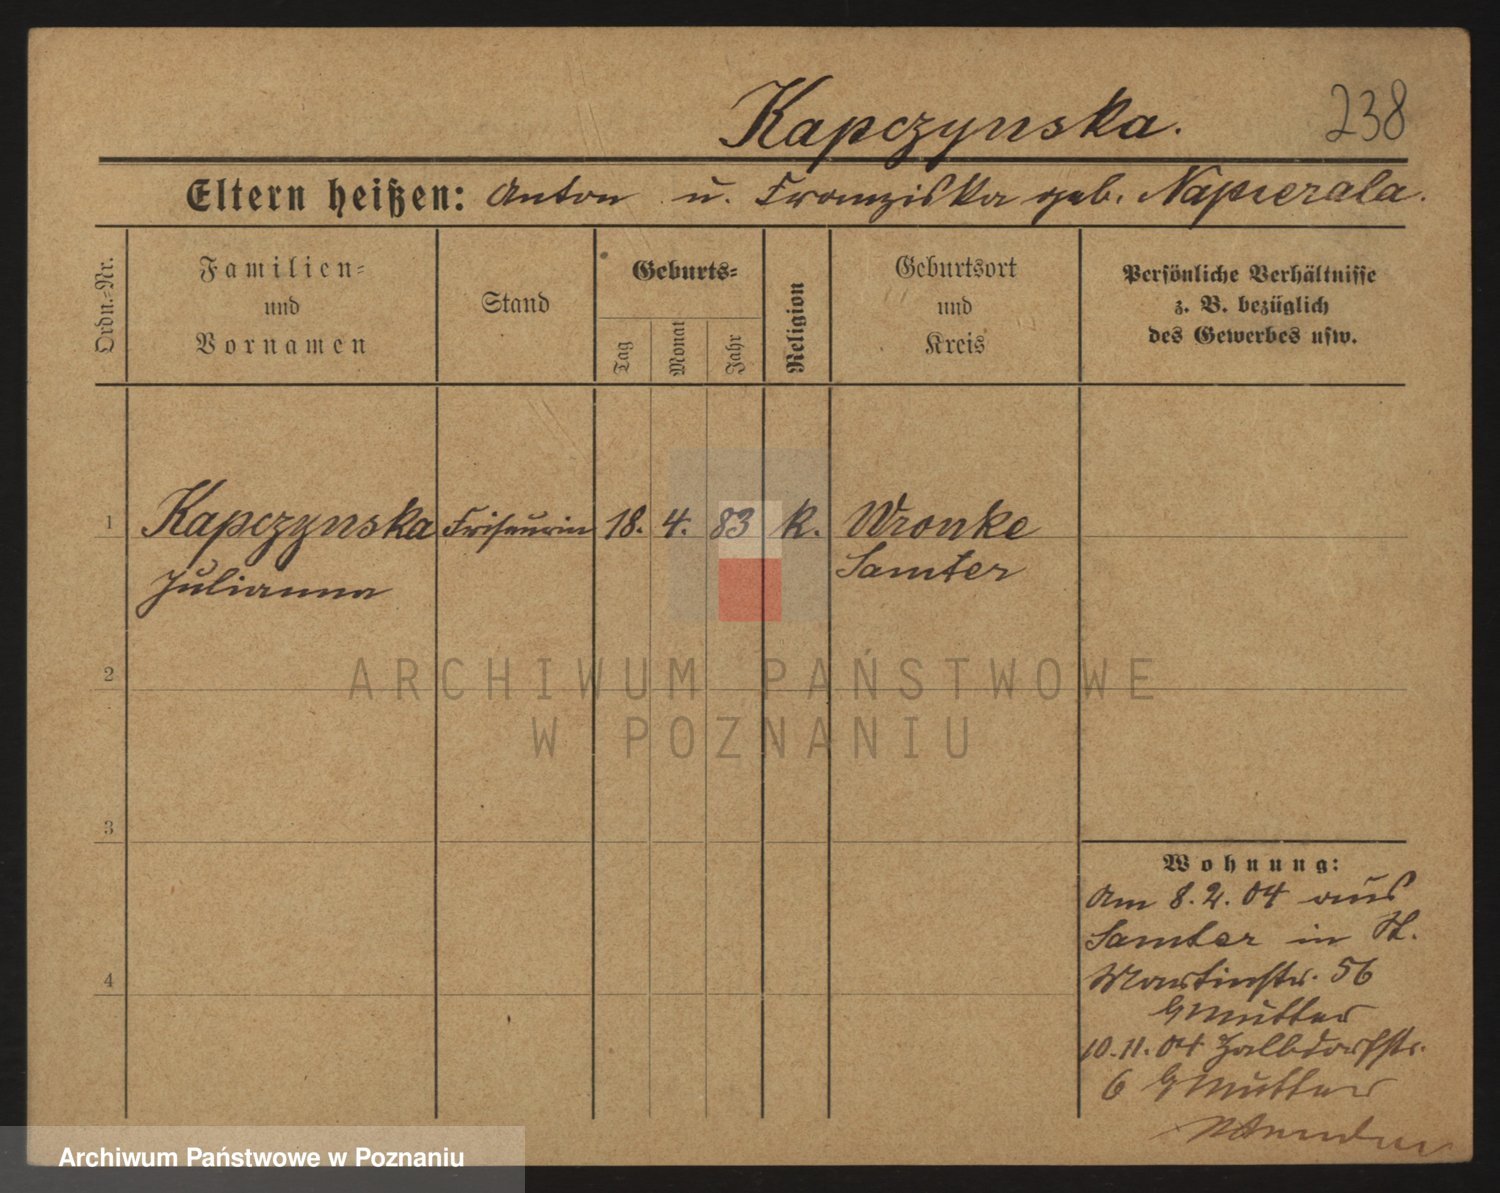 Kapczynska.
238
Eltern heißen: Anton u. Franziska geb. Napierala.
Ordn.=Nr.
Familien=
und
Vornamen
Stand
Geburts=
Tag
Monat
Jahr
Religion
Geburtsort
und
Kreis
Persönliche Verhältnisse
z. B. bezüglich
des Gewerbes usw.
1
Kapczynska Friseurin 18. 4. 83 k. Wronke
Julianna Samter
2
ARCHIWUM PAŃSTWOWE
W POZNANIU
3
Wohnung:
Am 8.2.04 aus
Samter in St.
Martinstr. 56
b/Mutter
4
10.11.04 Halbdorfstr.
6 b/Mutter
Archiwum Państwowe w Poznaniu